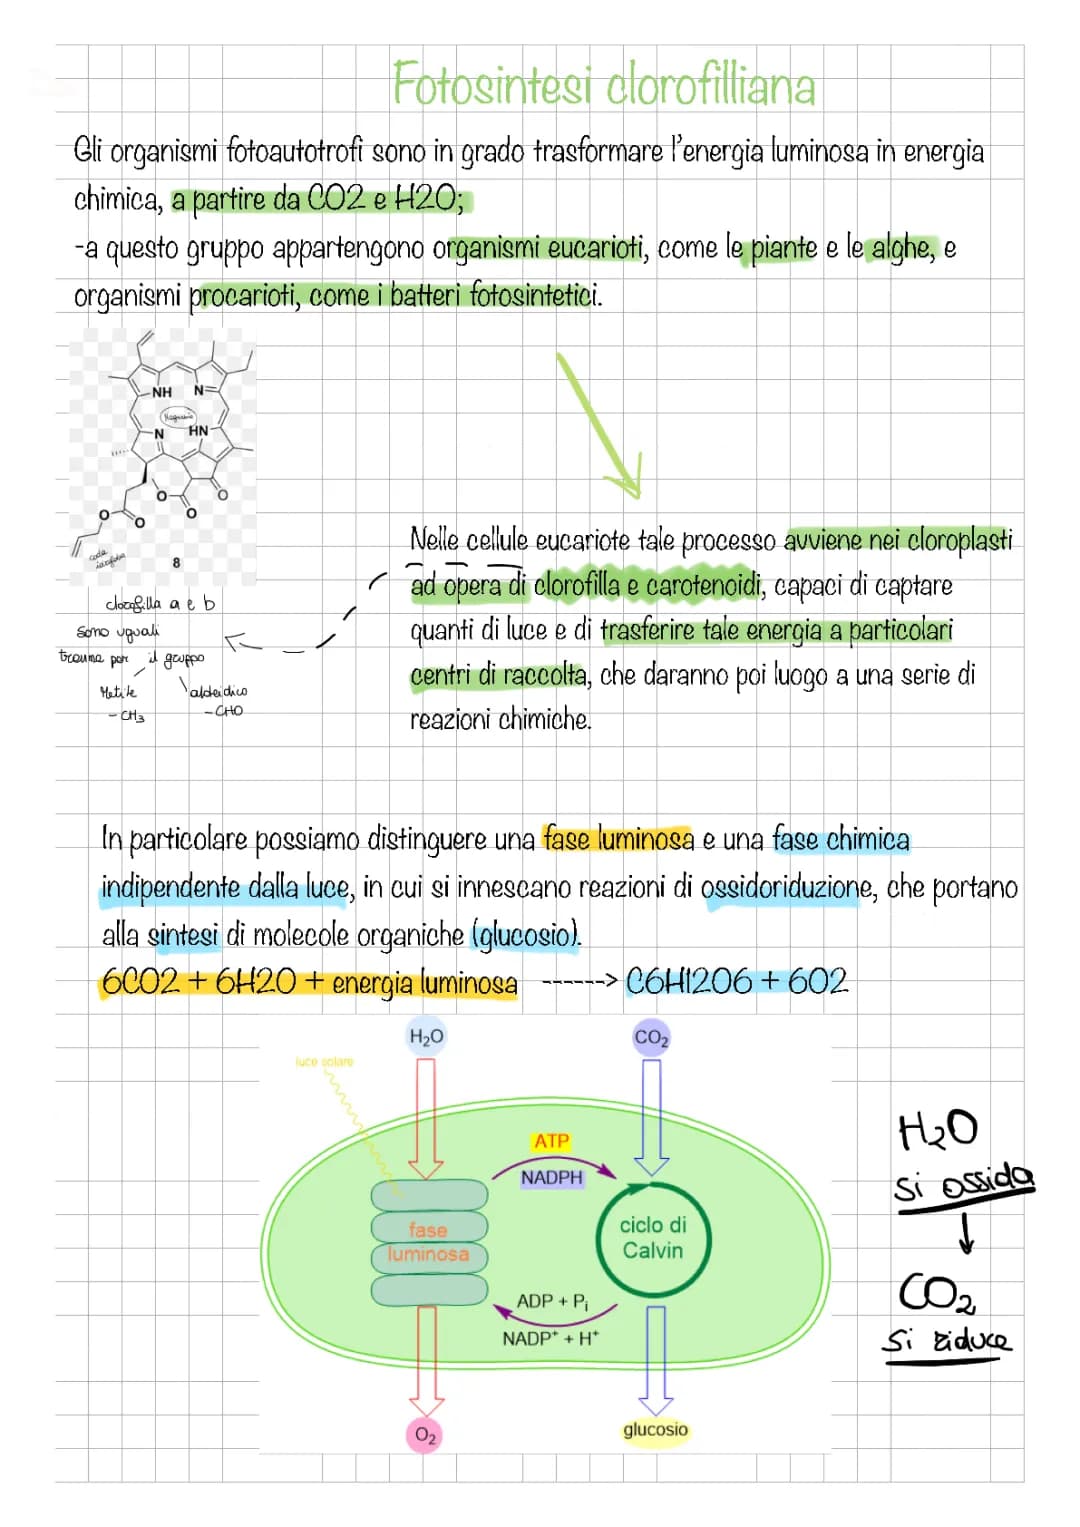 Fotosintesi clorofilliana
Gli organismi fotoautotrofi sono in grado trasformare l'energia luminosa in energia
chimica, a partire da CO2 e H2O;
-a questo gruppo appartengono organismi eucarioti, come le piante e le alghe, e
organismi procarioti, come i batteri fotosintetici.
NH N
Magnesio
N HN
O O
O O O
coda
8
clorofilla a e b
sono uguali
tranne per il gruppo
Metile aldeidico
- CH3 - CHO
Nelle cellule eucariote tale processo avviene nei cloroplasti
ad opera di clorofilla e carotenoidi, capaci di captare
quanti di luce e di trasferire tale energia a particolari
centri di raccolta, che daranno poi luogo a una serie di
reazioni chimiche.
In particolare possiamo distinguere una fase luminosa e una fase chimica
indipendente dalla luce, in cui si innescano reazioni di ossidoriduzione, che portano
alla sintesi di molecole organiche (glucosio).
6CO2 + 6H2O + energia luminosa ------> C6H12O6 + 6O2
H₂O CO₂
luce solare
ATP
NADPH
fase
luminosa
ciclo di
Calvin
ADP + Pi
NADP⁺ + H⁺
O₂
glucosio
H₂O
si ossida
↓
CO₂
si riduce